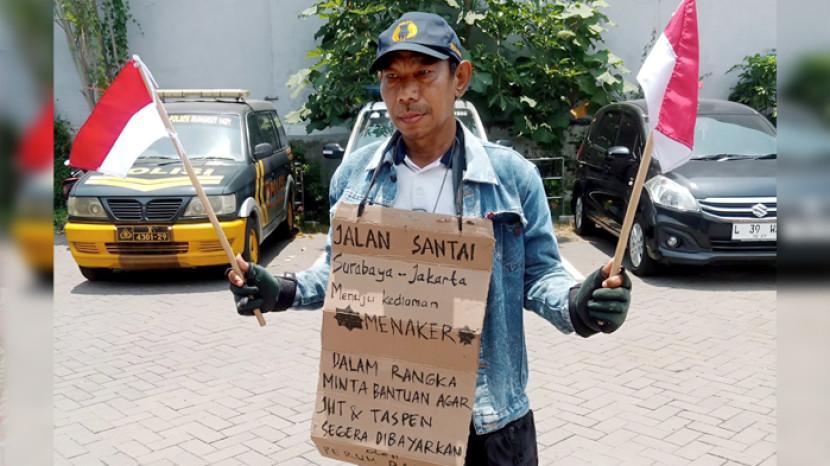 POLISI
4301-29
L 39
JALAN SANTAI
Surabaya - Jakarta
Menuju kediaman
MENAKER
DALAM RANGKA
MINTA BANTUAN AGAR
JHT & TASPEN
SEGERA DIBAYARKAN